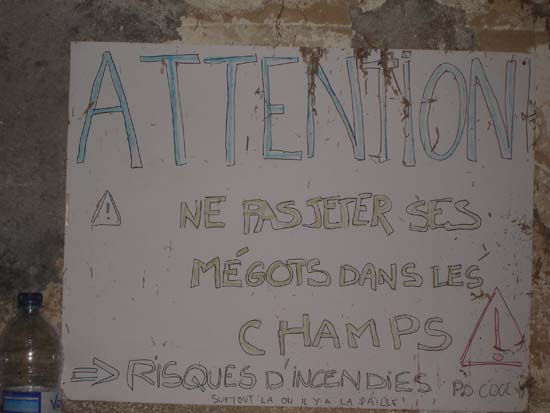 ATTENTION!
NE PAS JETER SES
MÉGOTS DANS LES
CHAMPS
=> RISQUES D'INCENDIES
SURTOUT LA OU IL Y A LA PAILLE!